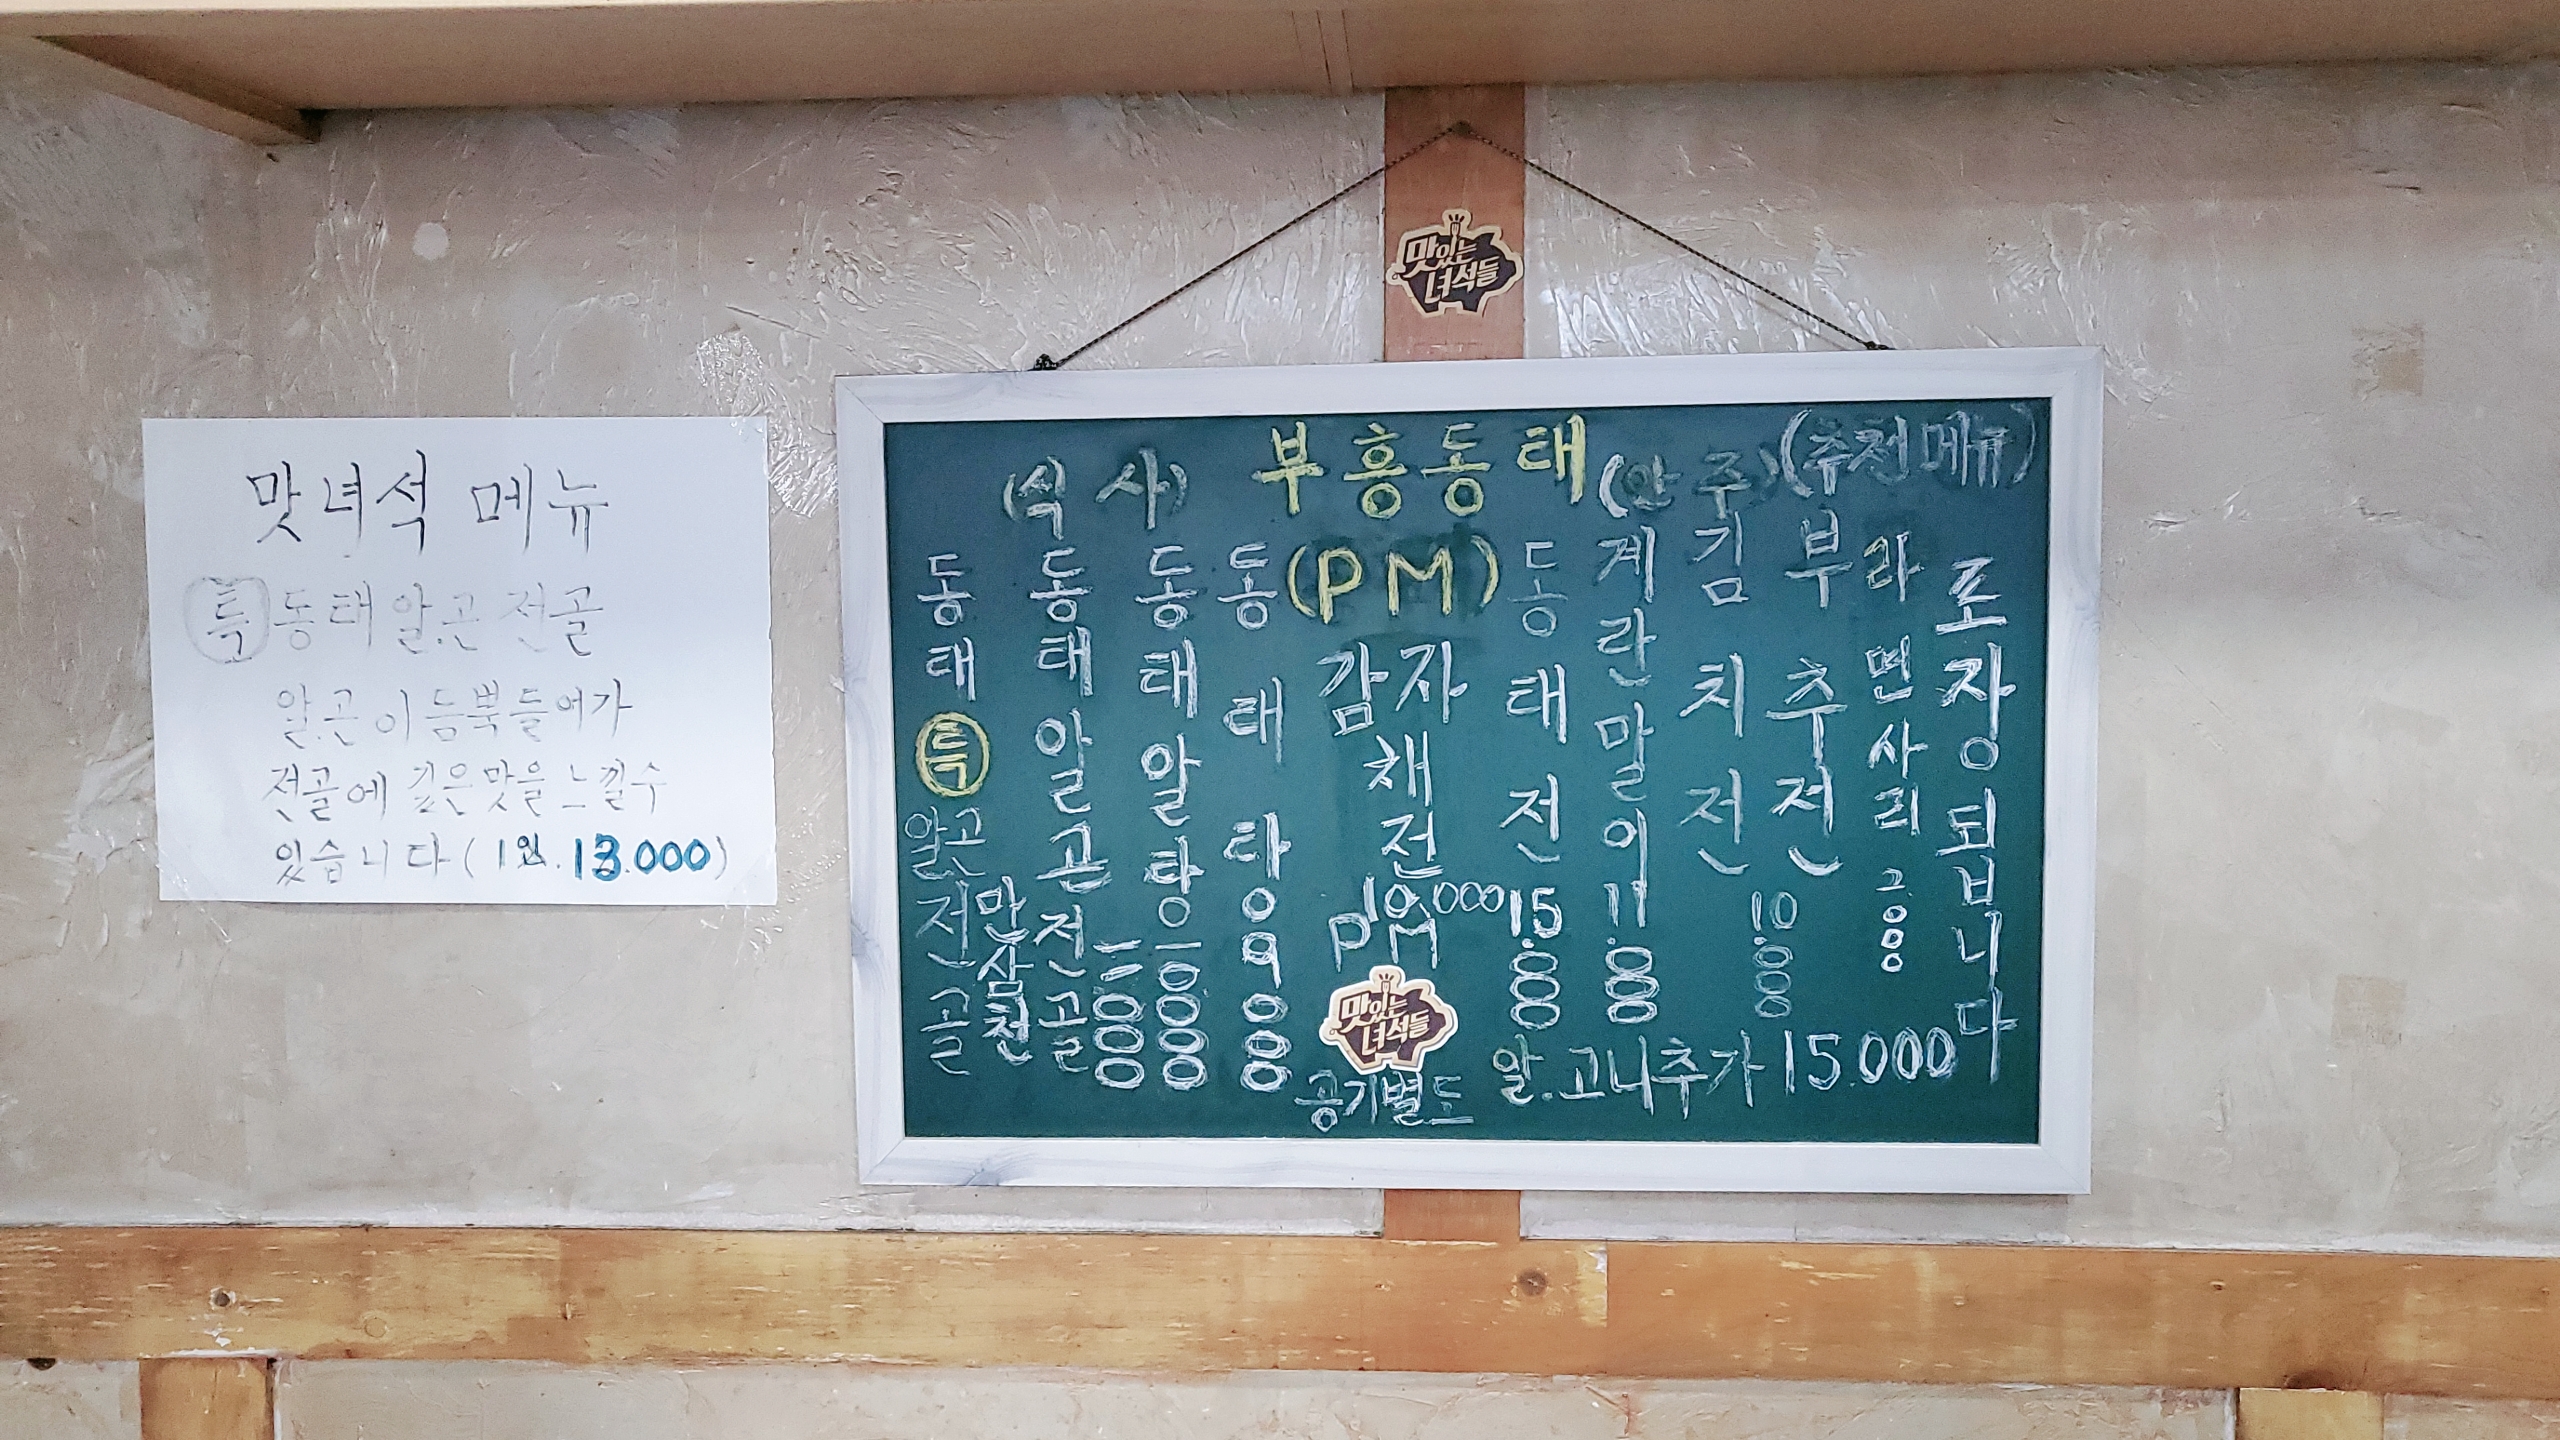 맛있는
녀석들
맛녀석 메뉴
특 동태알.곤 전골
알.곤이 듬뿍들어가
전골에 깊은맛을 느낄수
있습니다 (1인. 13.000)
부흥동태
(식사)
(안주)
(추천메뉴)
(PM)
동태 특 알곤 전골 만삼천
동태알곤전골
동태알탕
동태탕 9000
감자
채
전
10.000
PM
동태전 15.000
계란말이 11.000
김치전
부추전
10.000
라면사리 2000
포장됩니다
맛있는
녀석들
공기별도
알.고니추가 15.000